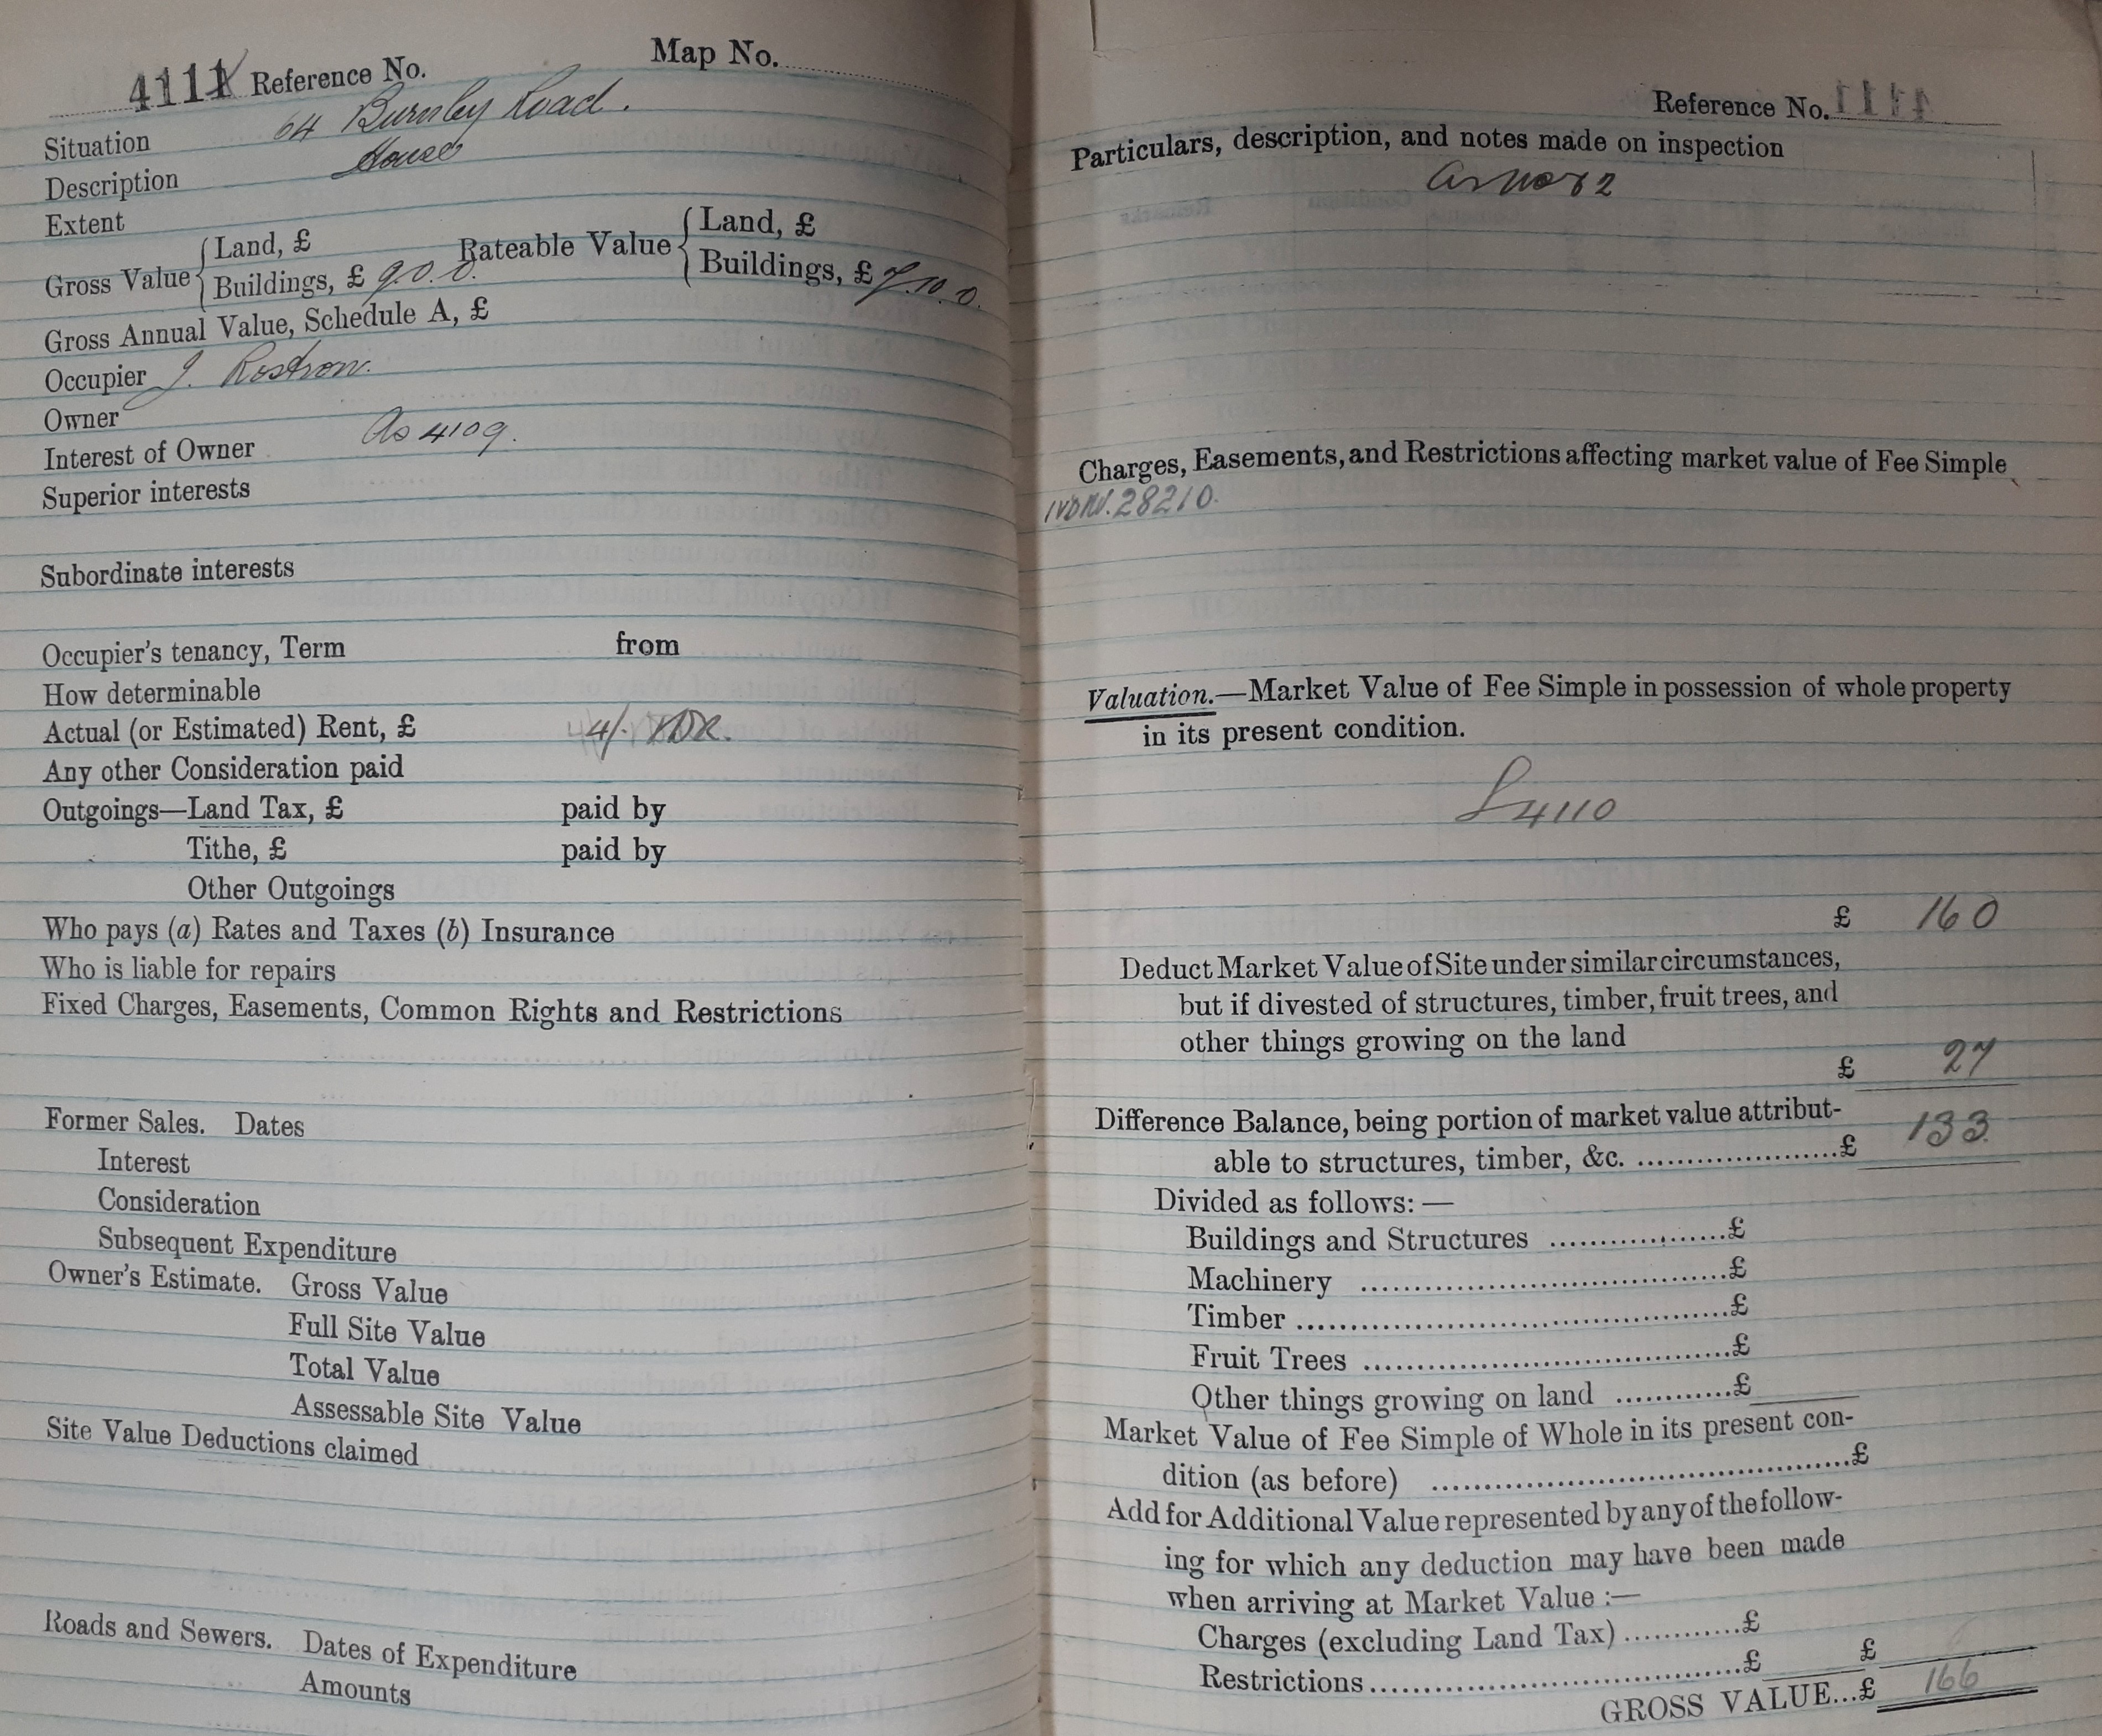 4111 Reference No.
Map No.
Situation 64 Burnley Road.
Description House
Extent
Gross Value { Land, £
Buildings, £ 9.0.0.
Rateable Value { Land, £
Buildings, £ 7.10.0.
Gross Annual Value, Schedule A, £
Occupier J. Rostron.
Owner
Interest of Owner As 4109.
Superior interests
Subordinate interests
Occupier's tenancy, Term from
How determinable
Actual (or Estimated) Rent, £ 4/-
Any other Consideration paid
Outgoings—Land Tax, £ paid by
Tithe, £ paid by
Other Outgoings
Who pays (a) Rates and Taxes (b) Insurance
Who is liable for repairs
Fixed Charges, Easements, Common Rights and Restrictions
Former Sales. Dates
Interest
Consideration
Subsequent Expenditure
Owner's Estimate. Gross Value
Full Site Value
Total Value
Assessable Site Value
Site Value Deductions claimed
Roads and Sewers. Dates of Expenditure
Amounts
Reference No.
Particulars, description, and notes made on inspection
Charges, Easements, and Restrictions affecting market value of Fee Simple
28210.
Valuation.—Market Value of Fee Simple in possession of whole property
in its present condition.
4110
£ 160
Deduct Market Value of Site under similar circumstances,
but if divested of structures, timber, fruit trees, and
other things growing on the land
£ 27
Difference Balance, being portion of market value attribut-
able to structures, timber, &c. ....................£ 133
Divided as follows: —
Buildings and Structures .................£
Machinery ....................................£
Timber ..........................................£
Fruit Trees ...................................£
Other things growing on land ...........£
Market Value of Fee Simple of Whole in its present con-
dition (as before) ..........................................£
Add for Additional Value represented by any of the follow-
ing for which any deduction may have been made
when arriving at Market Value :—
Charges (excluding Land Tax) ............£
Restrictions....................................£ £
GROSS VALUE...£ 166